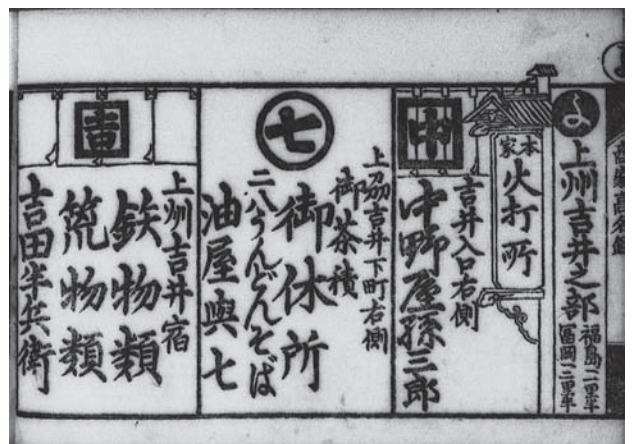 よ
上州吉井之部
福島二里半
冨岡一二里半
本家
火打所
中
吉井入口右側
中野屋孫三郎
七
上刕吉井下町右側
御茶積
御休所
二八うんどんそば
油屋與七
吉
上州吉井宿
鉄物類
荒物類
吉田半兵衛